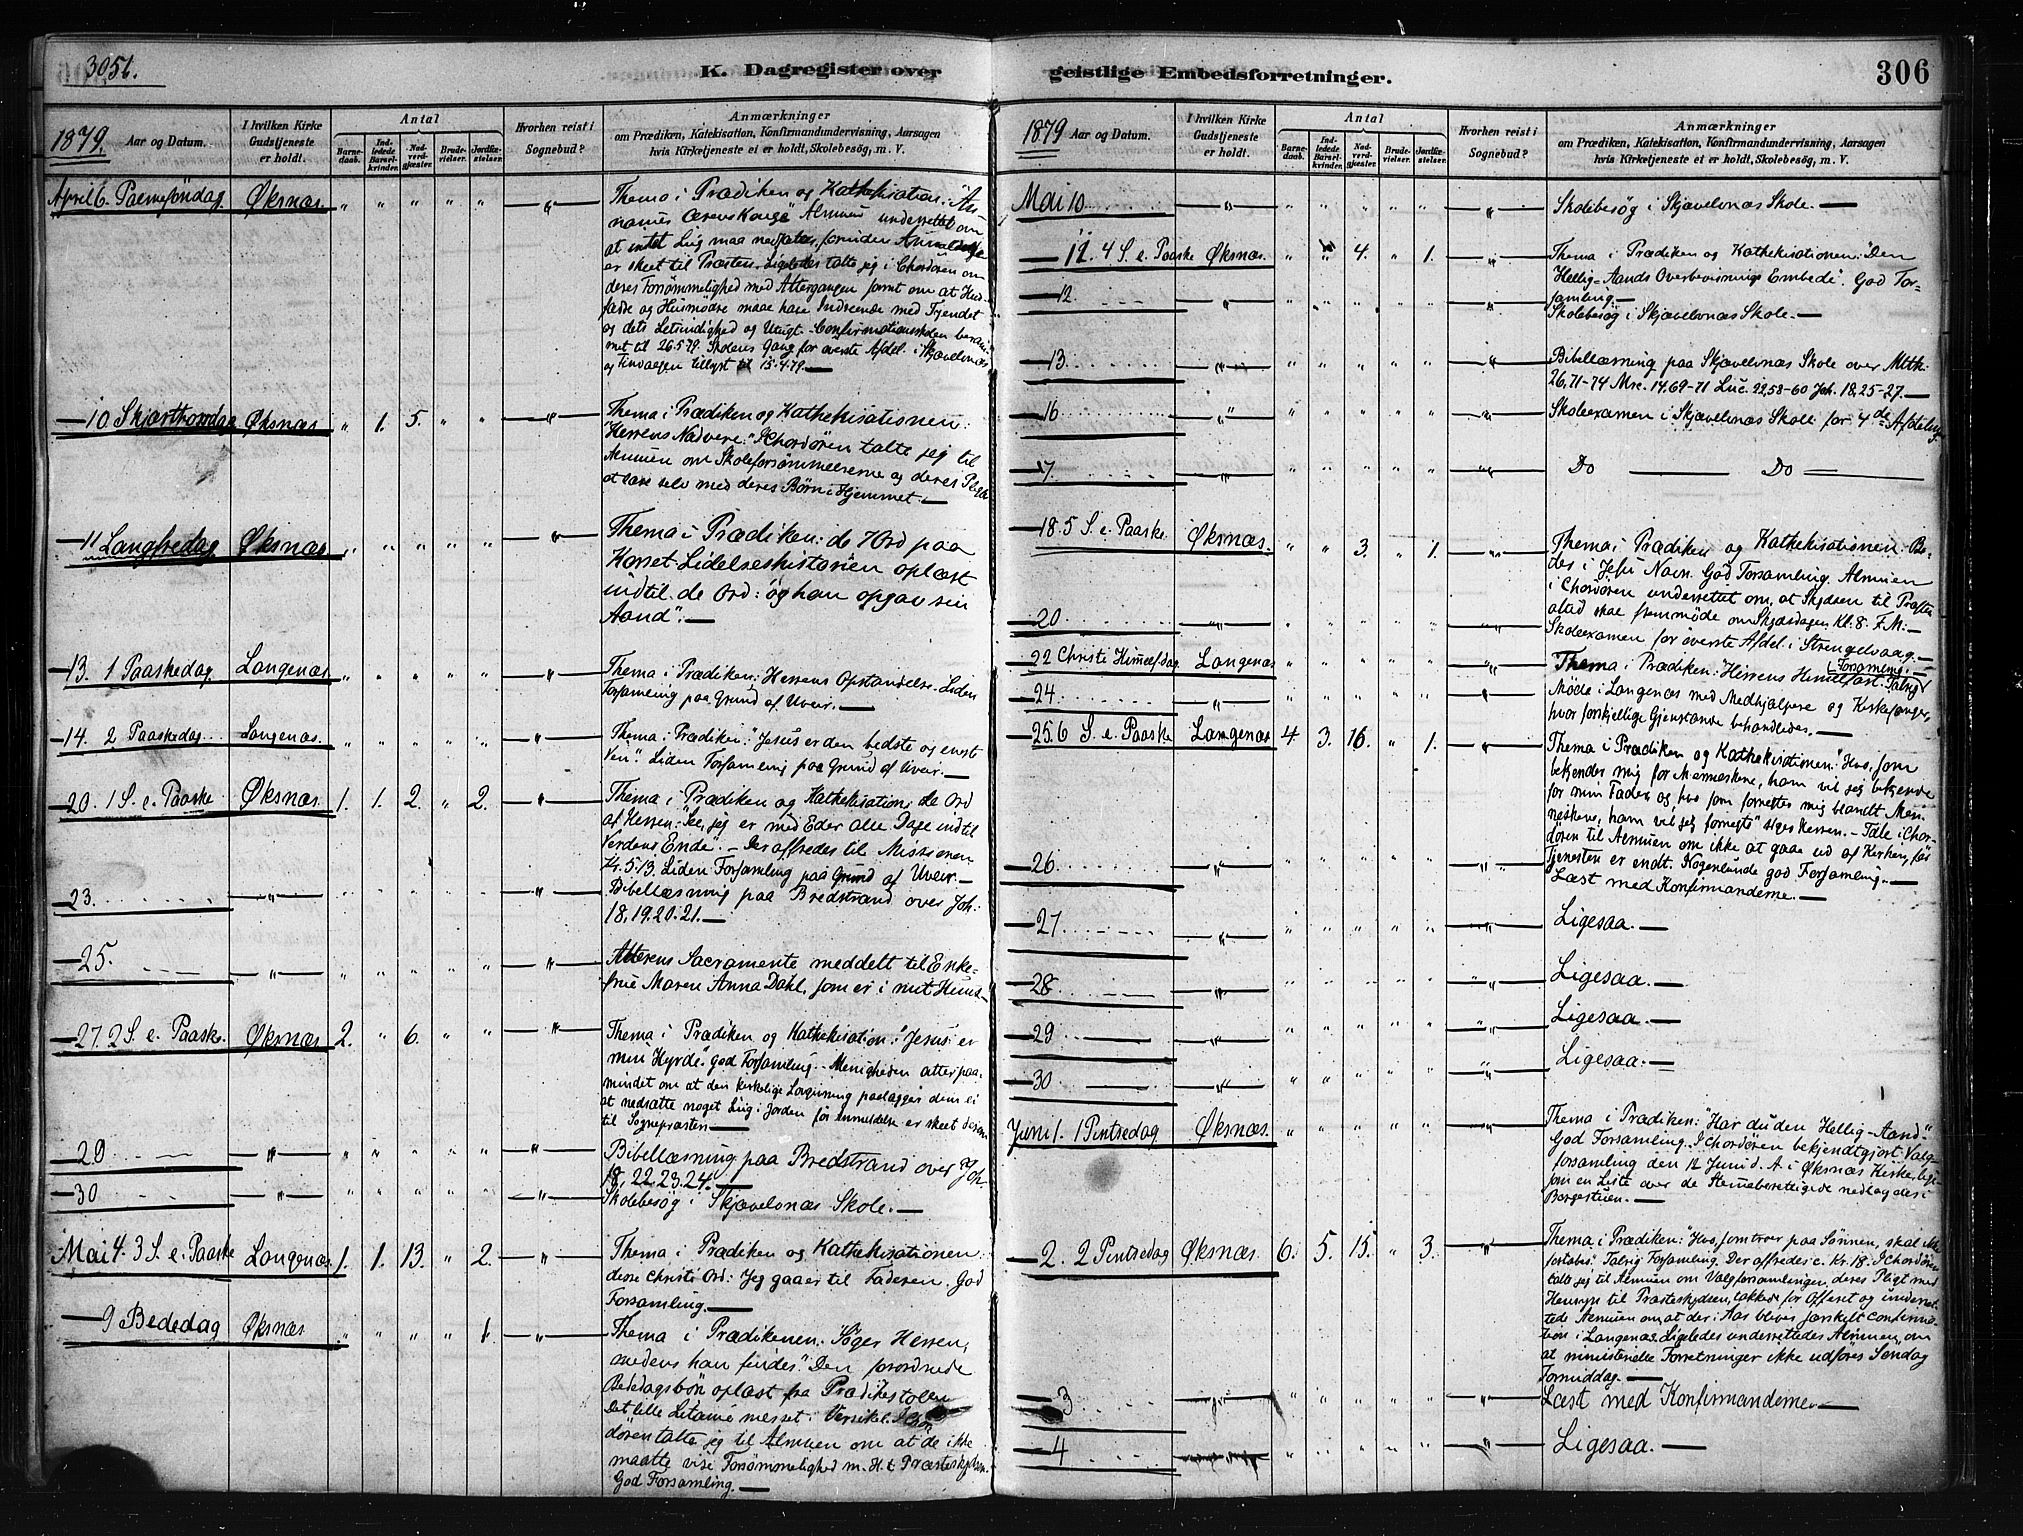 305b.
K. Dagregister over
1879.
Aar og Datum.
I hvilken Kirke Gudstjeneste er holdt.
Antal
Barnedaab.
Indledede Barselkvinder.
Nadverdgjæster.
Brudevielser.
Jordfæstelser.
Hvorhen reist i Sognebud?
Anmærkninger
om Prædiken, Katekisation, Konfirmandundervisning, Aarsagen
hvis Kirketjeneste ei er holdt, Skolebesøg, m. V.
April 6. Palmesøndag Øksnæs. " " " " " "
Thema i Prædiken og Kathekisation:
Ærens Konge" Almuen underrettet om
at intet Liig maa nedsættes, forinden Anmeldelse
er skeet til Præsten. Ligeledes talte jeg i Chordøren om
deres Forsømmelighed med Altergangen samt om at Hus-
fædre og Husmødre maae have Indseende med Tyendet
og dets Letsindighed og Utugt. Confirmationsskolen beram-
met til 26.5.79. Skolens Gang for øverste Afdel. i Skjævelnæs
og Tindagen tillyst til 15.4.79.—
— 10 Skjærthorsdag Øksnæs " 1. 5. " " "
Thema i Prædiken og Kathekisationen:
"Herrens Nadvere." I Chordøren talte jeg til
Almuen om Skoleforsømmelserne og deres Pligt
at læse selv med deres Børn i Hjemmet.—
— 11 Langfredag Øksnæs " " " " " "
Thema i Prædiken: de 7 Ord paa
Korset. Lidelseshistorien oplæst
indtil de Ord: "og han opgav sin
Aand".—
— 13. 1 Paaskedag Langenæs " " " " " "
Thema i Prædiken: Herrens Opstandelse. Liden
Forsamling paa Grund af Uveir.—
— 14. 2 Paaskedag Langenæs. " " " " " "
Thema i Prædiken: "Jesus er den bedste og eneste
Ven". Liden Forsamling paa Grund af Uveir.—
— 20. 1 S. e. Paaske Øksnæs. 1. 1. 2. " 2. "
Thema i Prædiken og Kathekisation: de Ord
af Herren: "See, jeg er med Eder alle Dage indtil
Verdens Ende". – Der offredes til Missionen
Kr. 5.13. Liden Forsamling paa Grund af Uveir.—
— 23. " " " " " " "
Bibellæsning paa Bredstrand over Joh:
18, 19. 20. 21.—
— 25. " " " " " " "
Alterens Sacramente meddelt til Enke-
frue Maren Anna Dahl, som er i mit Huus—
— 27. 2 S. e. Paaske. Øksnæs 2. " 6. " " "
Thema i Prædiken og Kathekisation: "Jesus er
min Hyrde". god Forsamling. – Menigheden atter paa-
mindet om at den kirkelige Lovgivning paalægger dem ei
at nedsætte noget Liig i Jorden før Anmeldelse er skeet derom
til Sognepræsten—
— 29 " " " " " " "
Bibellæsning paa Bredstrand over Joh.
18, 22. 23. 24.—
— 30 " " " " " " "
Skolebesøg i Skjævelnæs Skole.—
Mai 4. 3 S. e. Paaske Langenæs. 1. 1. 13. " 2. "
Thema i Prædiken og Kathekisationen:
disse Christi Ord: Jeg gaaer til Faderen. God
Forsamling.—
— 9 Bededag Øksnæs " " " " 1. "
Thema i Prædikenen. Søger Herren,
medens han findes." Den forordnede
Bededagsbøn oplæst fra Prædikestolen
Det lille Letanie messet. Versikel. I Chor-
døren talte jeg til Almuen om at de ikke
maatte vise Forsømmelighed m. H. t. Præsteskydsen.
God Forsamling.—
geistlige Embedsforretninger.
306
1879
Aar og Datum.
I hvilken Kirke Gudstjeneste er holdt.
Antal
Barnedaab.
Indledede Barselkvinder.
Nadverdgjæster.
Brudevielser.
Jordfæstelser.
Hvorhen reist i Sognebud?
Anmærkninger
om Prædiken, Katekisation, Konfirmandundervisning, Aarsagen
hvis Kirketjeneste ei er holdt, Skolebesøg, m. V.
Mai 10 " " " " " " "
Skolebesøg i Skjævelnæs Skole.—
11. 4 S. e. Paaske Øksnæs. " " 4. " 1. "
Thema i Prædiken og Kathekisationen: "Den
Hellig-Aands Overbevisnings Embede". God For-
samling—
— 12. " " " " " " "
Skolebesøg i Skjævelnæs Skole.—
— 13. " " " " " "
Bibellæsning paa Skjævelnæs Skole over Mtth.
26, 71-74 Mrc. 14.69-71 Luc. 22,58-60 Joh. 18, 25-27.—
— 16 " " " " " " "
Skoleexamen i Skjævelnæs Skole for 4de Afdeling
— 17. " " " " " " "
Do — Do —
— 18. 5 S. e. Paaske Øksnæs. " " 3. " 1. "
Thema i Prædiken og Kathekisationen: Be-
des i Jesu Navn. God Forsamling. Almuen
i Chordøren underrettet om, at Skydsen til Præsten
altid skal fremmøde om Skydsdagen Kl. 8. F.M.—
— 20 " " " " " " "
Skoleexamen for øverste Afdel. i Strengelvaag.—
— 22 Christi Himmelfdag Langenæs " " " " " "
Thema i Prædiken: "Herrens Himmelfart. Talrig
(Forsamling.—
— 24. " " " " " " "
Møde i Langenæs med Medhjælpere og Kirkesanger,
hvor forskjellige Gjenstande behandledes.—
— 25. 6 S. e. Paaske Langenæs 4 3. 16. " 1. "
Thema i Prædiken og Kathekisationen: "Hvo, som
bekjender mig for Menneskene, ham vil jeg bekjende
for min Fader, og hvo som fornegter mig blandt Men-
neskene, ham vil jeg fornegte" siger Herren. – Tale i Chor-
døren til Almuen om ikke at gaae ud af Kirken, før
Tjenesten er endt. Nogenlunde god Forsamling.—
— 26 " " " " " " "
Læst med Konfirmanderne.—
— 27 " " " " " " "
Ligesaa.—
— 28 " " " " " " "
Ligesaa.—
— 29 " " " " " " "
Ligesaa.—
— 30 " " " " " " "
Ligesaa.—
Juni 1. 1 Pintsedag Øksnæs. " " " " " "
Thema i Prædiken: "Har du den Hellig-Aand"
God Forsamling. I Chordøren bekjendtgjort Valg-
forsamling den 12 Juni d. A. i Øksnæs Kirke, lige-
som en Liste over de Stemmeberettigede nedlagdes i
Borgestuen.—
— 2. 2 Pintsedag Øksnæs. 6. 5. 15. " 3. "
Thema i Prædiken: "Hvo, som troer paa Sønnen, skal ikke
fortabes". Talrig Forsamling. Der offredes c. Kr. 18. I Chordøren
talte jeg til Almuen om Valgforsamlingen, deres Pligt med
Hensyn til Præsteskydsen, takkede for Offeret og underret-
tede Almuen om at der i Aar bliver særskilt confirma-
tion i Langenæs. Ligeledes underrettedes Almuen, om
at ministerielle Forretninger ikke udføres Søndag
Formiddag.—
— 3 " " " " " "
Læst med Konfirmanderne—
— 4 " " " " " "
Ligesaa.—